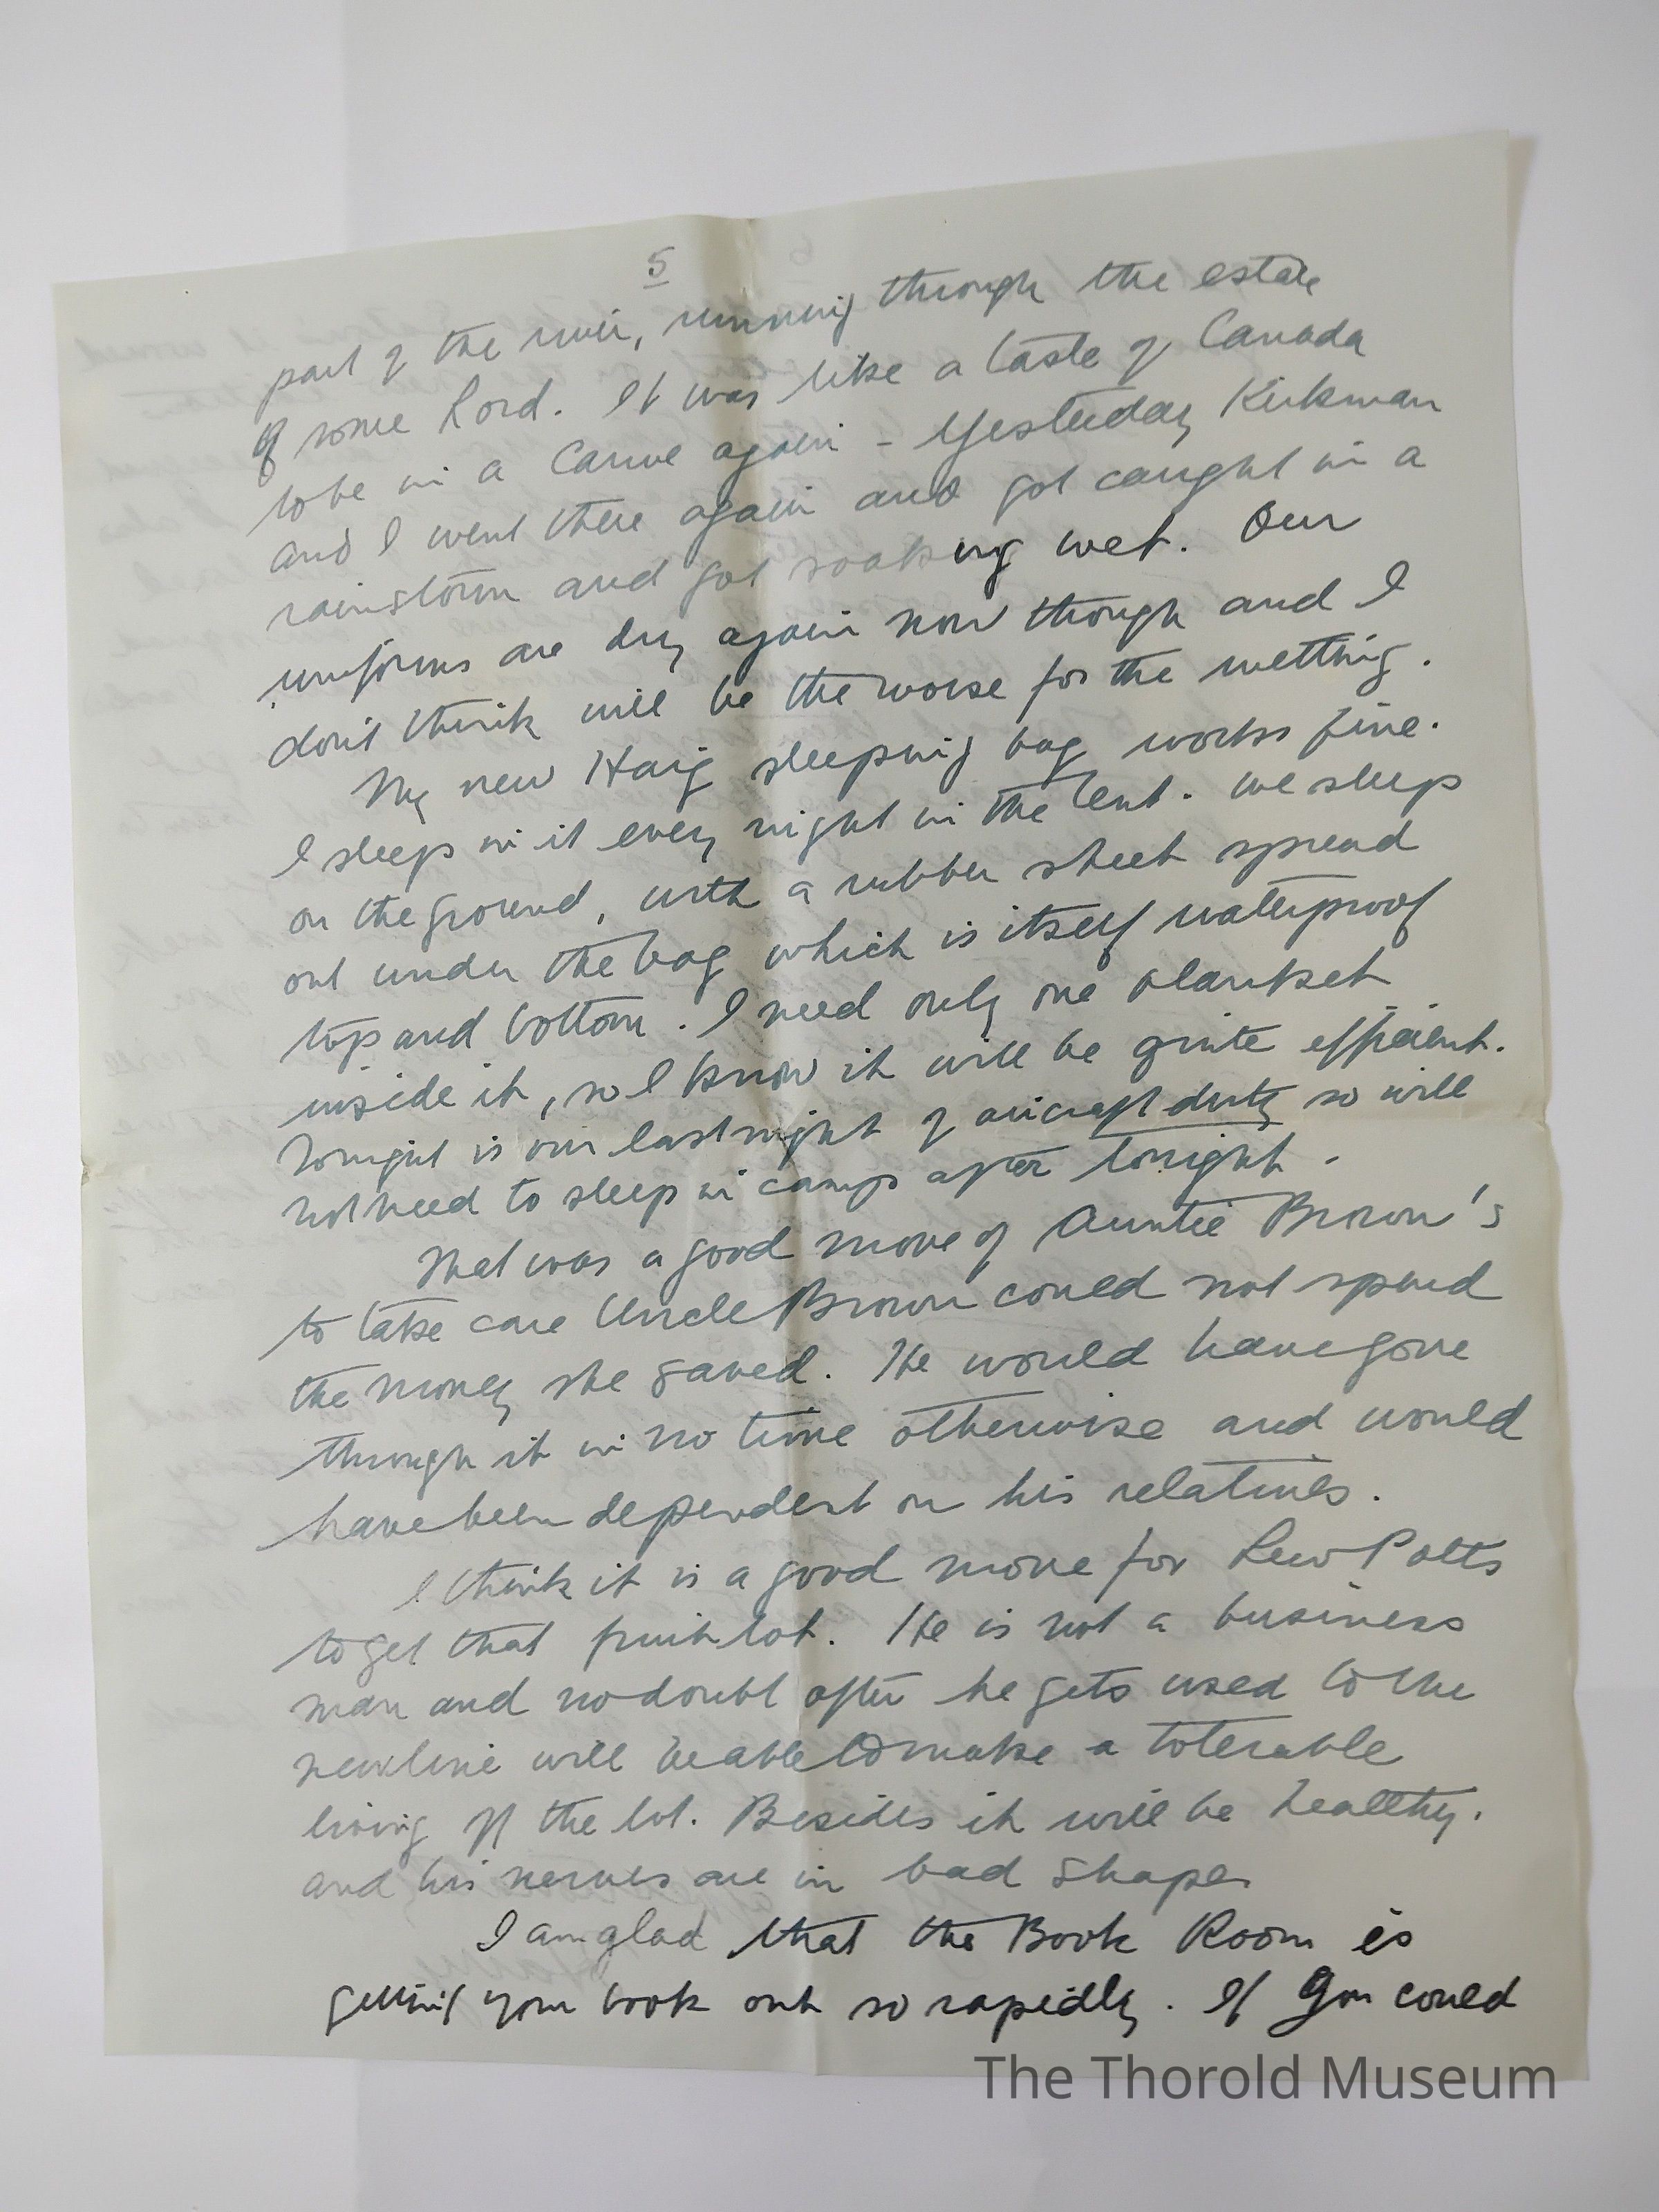 5
part of the river, running through the estate
of some Lord. It was like a taste of Canada
to be in a Canoe again - Yesterday Kirkman
and I went there again and got caught in a
rainstorm and got soaking wet. Our
uniforms are dry again now though and I
don't think will be the worse for the wetting.
My new Haig sleeping bag works fine.
I sleep in it every night in the tent. We sleep
on the ground, with a rubber sheet spread
out under the bag which is itself waterproof
top and bottom. I need only one blanket
inside it, so I know it will be quite efficient.
Tonight is our last night of aircraft duty so will
not need to sleep in camp after tonight.
That was a good move of Auntie Brown's
to take care Uncle Brown could not spend
the money she saved. He would have gone
through it in no time otherwise and would
have been dependent on his relatives.
I think it is a good move for Lew Potts
to get that fruit lot. He is not a business
man and no doubt after he gets used to the
new line will be able to make a tolerable
living off the lot. Besides it will be healthy,
and his nerves are in bad shape.
I am glad that the Book Room is
getting your book out so rapidly. If you could
The Thorold Museum